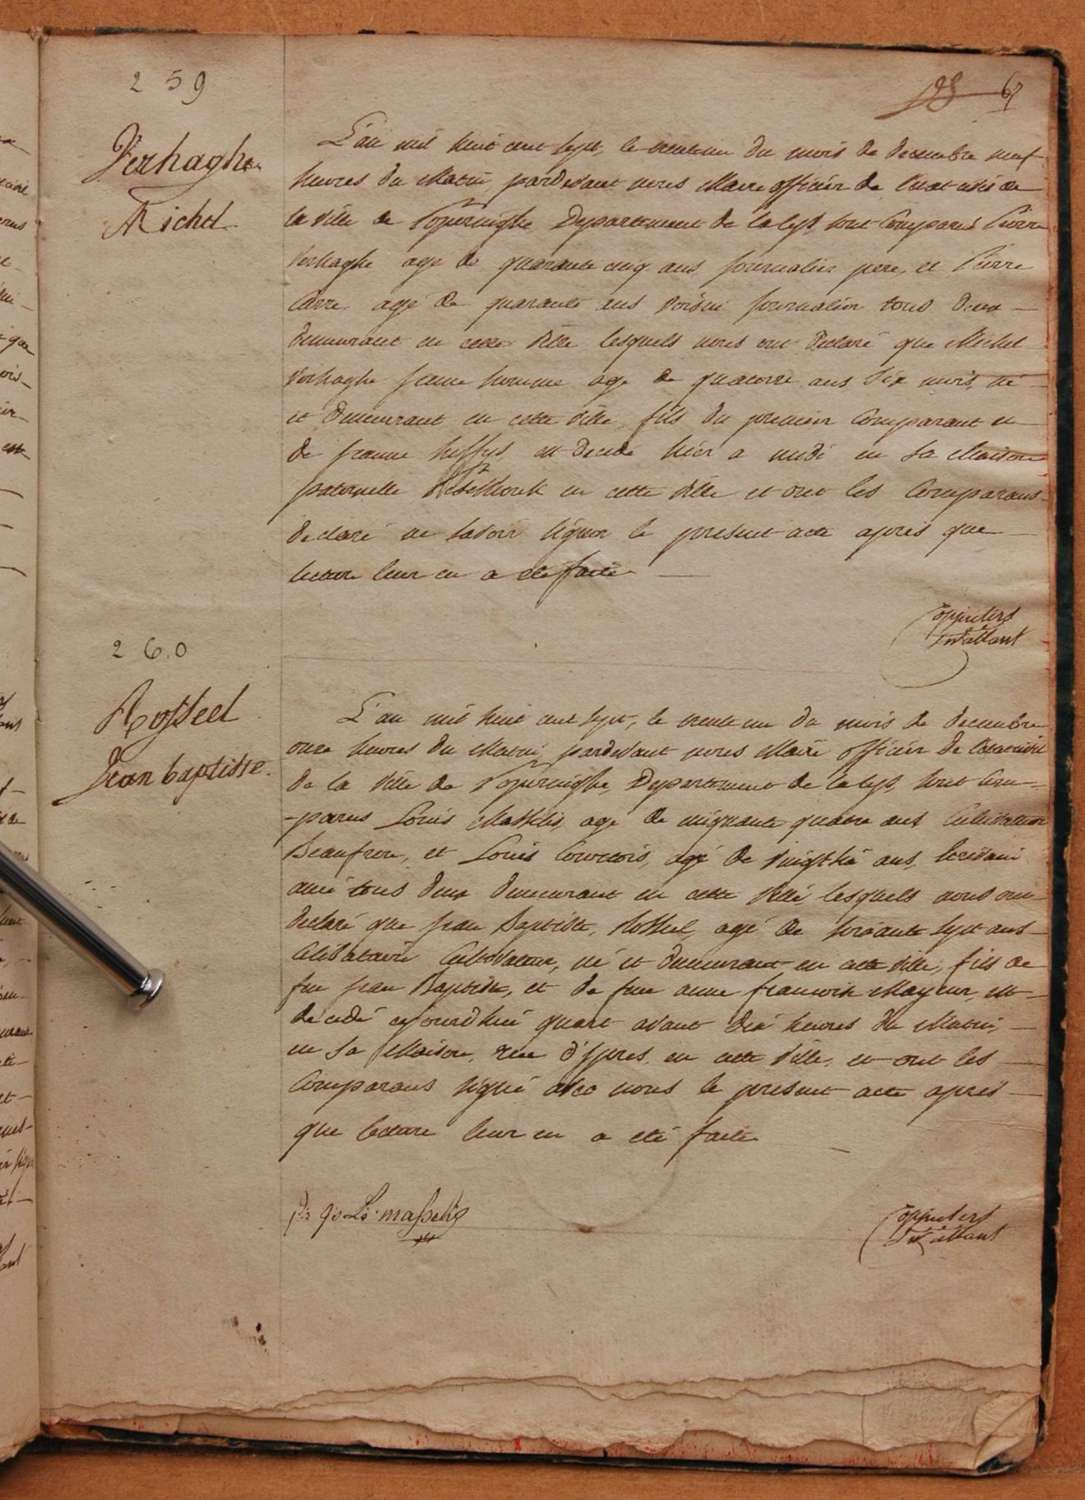 259
67
Verhaghe
Michel
L'an mil huit cent sept, le trente un du mois de decembre neuf
heures du Matin pardevant nous Maire officier de l'etat civil de
la ville de Poperinghe Departement de la Lys, sont Comparus Pierre
Verhaghe agé de quarante cinq ans journalier pere, et Pierre
Carre agé de quarante ans voisin journalier tous deux
demeurant en cette ville lesquels nous ont declaré que Michel
Verhaghe jeune homme agé de quatorze ans six mois, né
et demeurant en cette ville, fils du premier Comparant et
de jeanne est decedé hier a midi en sa Maison
paternelle en cette ville et ont les Comparans
declaré ne savoir signer le present acte apres que
lecture leur en a ete faite
260
Rosseel
Jean baptiste
L'an mil huit cent sept, le trente un du mois de decembre
onze heures du Matin pardevant nous Maire officier de l'etat civil
de la ville de Poperinghe, Departement de la Lys, sont Com-
-parus Louis Masselis, agé de cinquante quatre ans Cultivateur
Beaufrere, et Louis agé de vingt six ans, ecrivain
ami tous deux demeurant en cette ville lesquels nous ont
declaré que jean Baptiste Rosseel, agé de soixante sept ans
Celibataire Cultivateur, né et demeurant en cette ville, fils de
feu jean Baptiste, et de feue anne francoise Mayeur, est
decedé cejourdhui quart avant dix heures du Matin,
en sa Maison, rue d'Ypres, en cette ville, et ont les
Comparans signé avec nous le present acte apres
que lecture leur en a eté faite
masselis